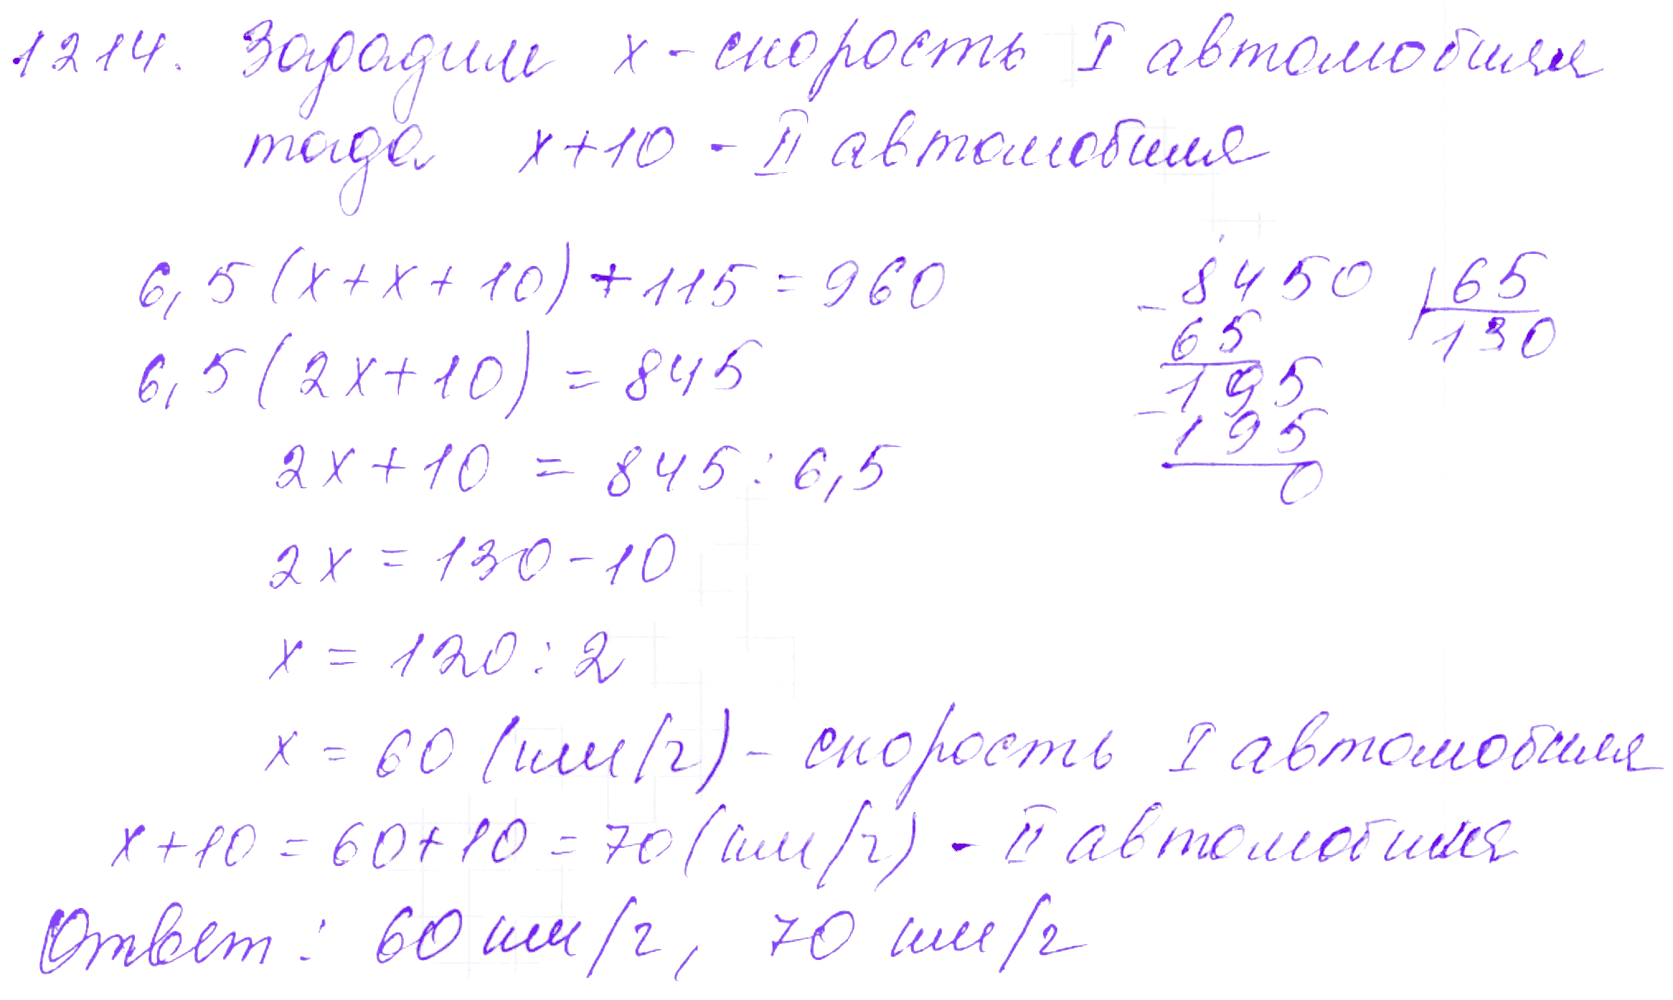 1214. Зададим x - скорость I автомобиля
тогда x+10 - II автомобиля
6,5(x+x+10)+115=960
6,5(2x+10)=845
2x+10 = 845:6,5
2x=130-10
x=120:2
x=60 (км/г) - скорость I автомобиля
x+10=60+10=70(км/г) - II автомобиля
Ответ: 60 км/г, 70 км/г
- 8450 65
65 130
195
- 195
0